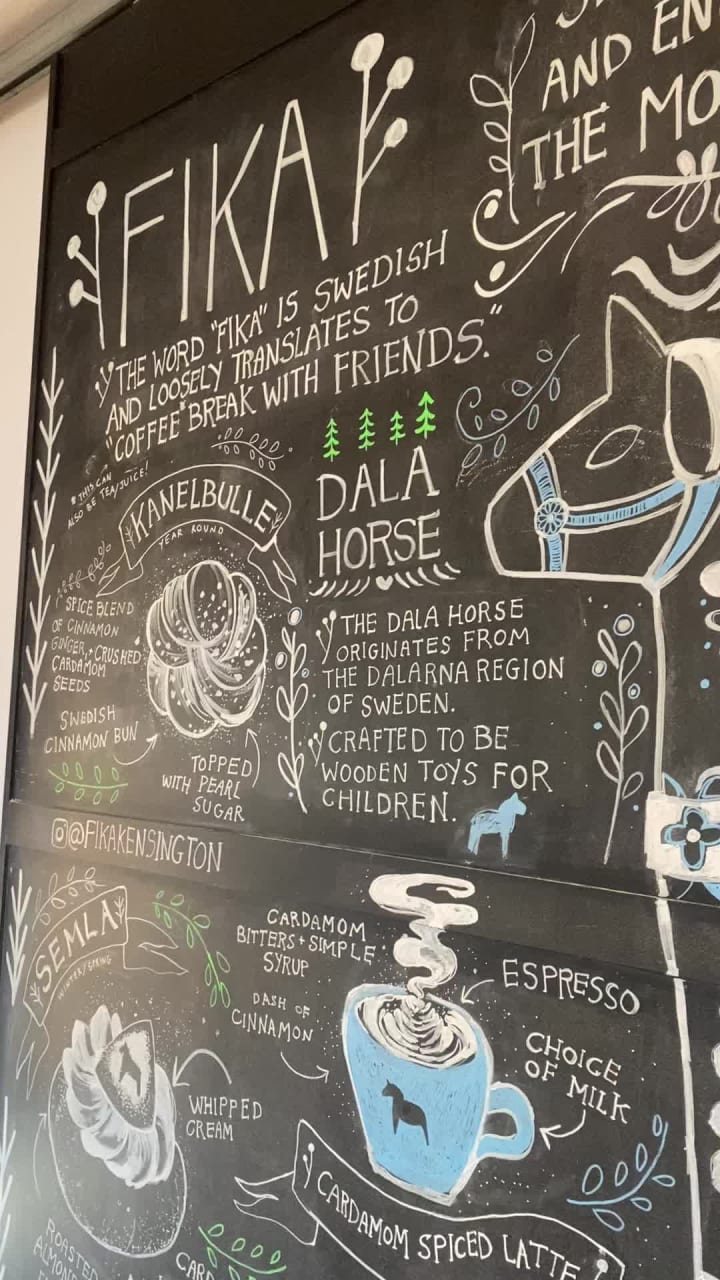 FIKA
"THE WORD "FIKA" IS SWEDISH
AND LOOSELY TRANSLATES TO
"COFFEE" BREAK WITH FRIENDS."
*THIS CAN
ALSO BE TEA/JUICE!
AND EN
THE MO
KANELBULLE
YEAR ROUND
SPICE BLEND
OF CINNAMON
GINGER, + CRUSHED
CARDAMOM
SEEDS
SWEDISH
CINNAMON BUN
TOPPED
WITH PEARL
SUGAR
DALA
HORSE
THE DALA HORSE
ORIGINATES FROM
THE DALARNA REGION
OF SWEDEN.
CRAFTED TO BE
WOODEN TOYS FOR
CHILDREN.
@FIKAKENSINGTON
SEMLA
WINTER/SPRING
WHIPPED
CREAM
ROASTED
CARD
CARDAMOM
BITTERS + SIMPLE
SYRUP
DASH OF
CINNAMON
ESPRESSO
CHOICE
OF MILK
CARDAMOM SPICED LATTE